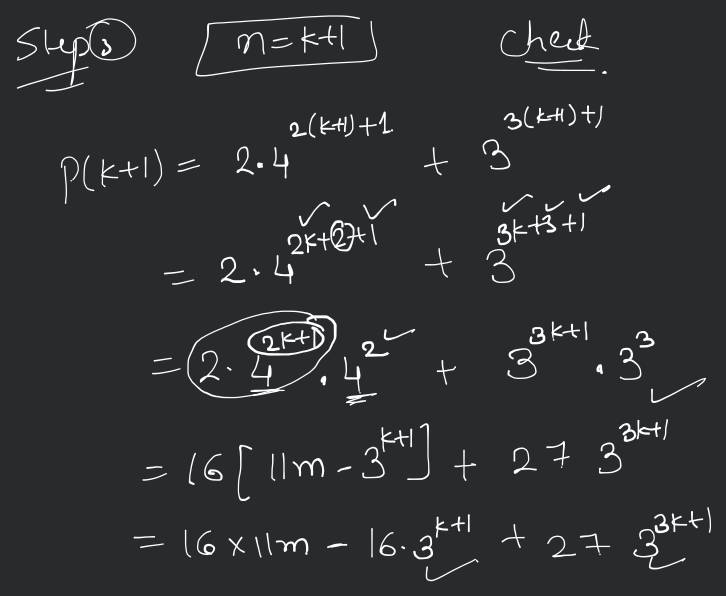 Step③ n=k+1 Check
P(k+1) = 2·4^{2(k+1)+1} + 3^{3(k+1)+1}
= 2·4^{2k+2+1} + 3^{3k+3+1}
= 2·4^{2k+1}·4^2 + 3^{3k+1}·3^3
= 16[11m - 3^{k+1}] + 27 3^{3k+1}
= 16×11m - 16·3^{k+1} + 27 3^{3k+1}